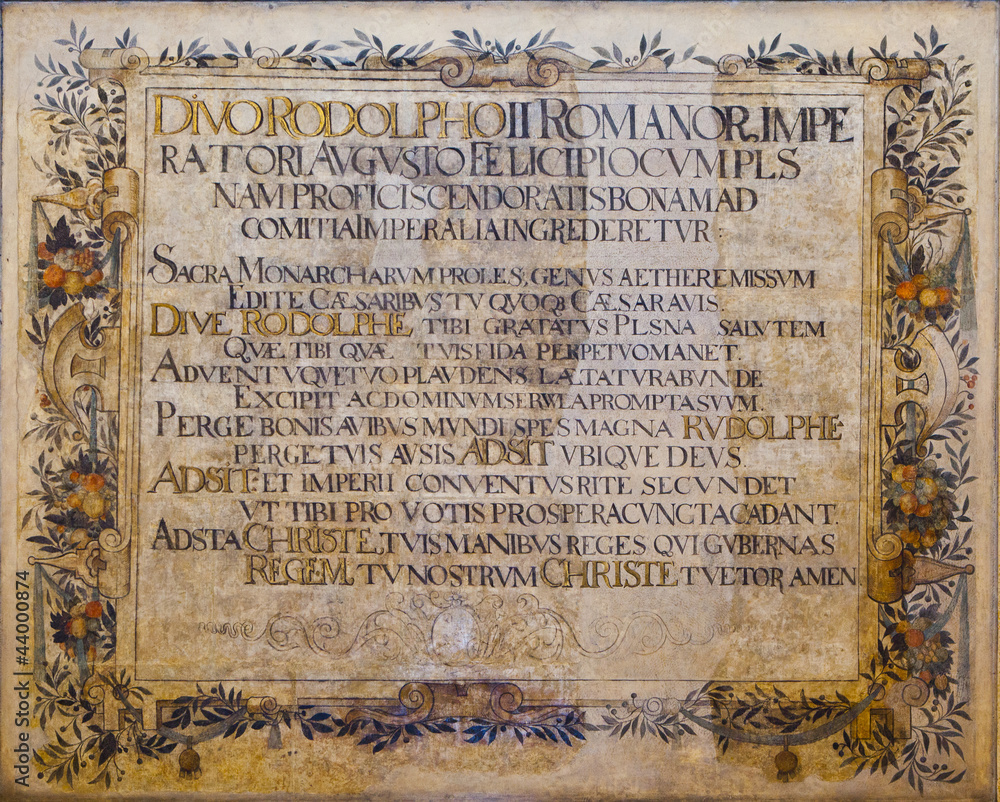 DIVO RODOLPHO II ROMANOR, IMPE
RATORI AVGVSTO FELICI PIO CVM PLS
NAM PROFICISCENDO RATISBONAM AD
COMITIA IMPERALIA INGREDERETVR :
SACRA MONARCHARVM PROLES, GENVS AETHERE MISSVM
EDITE CÆSARIBVS TV QVOQ; CÆSAR AVIS.
DIVE RODOLPHE, TIBI GRATATVS PLSNA SALVTEM
QVÆ TIBI QVÆ TVIS FIDA PERPETVO MANET.
ADVENTVQVE TVO PLAVDENS LÆTATVRABVNDE
EXCIPIT AC DOMINVM PROMPTA SVVM.
PERGE BONIS AVIBVS MVNDI SPES MAGNA RVDOLPHE
PERGE TVIS AVSIS ADSIT VBIQVE DEVS.
ADSIT: ET IMPERII CONVENTVS RITE SECVNDET
VT TIBI PRO VOTIS PROSPERA CVNCTA CADANT.
ADSTA CHRISTE, TVIS MANIBVS REGES QVI GVBERNAS
REGEM, TV NOSTRVM CHRISTE TVETOR AMEN
Adobe Stock | #44000874